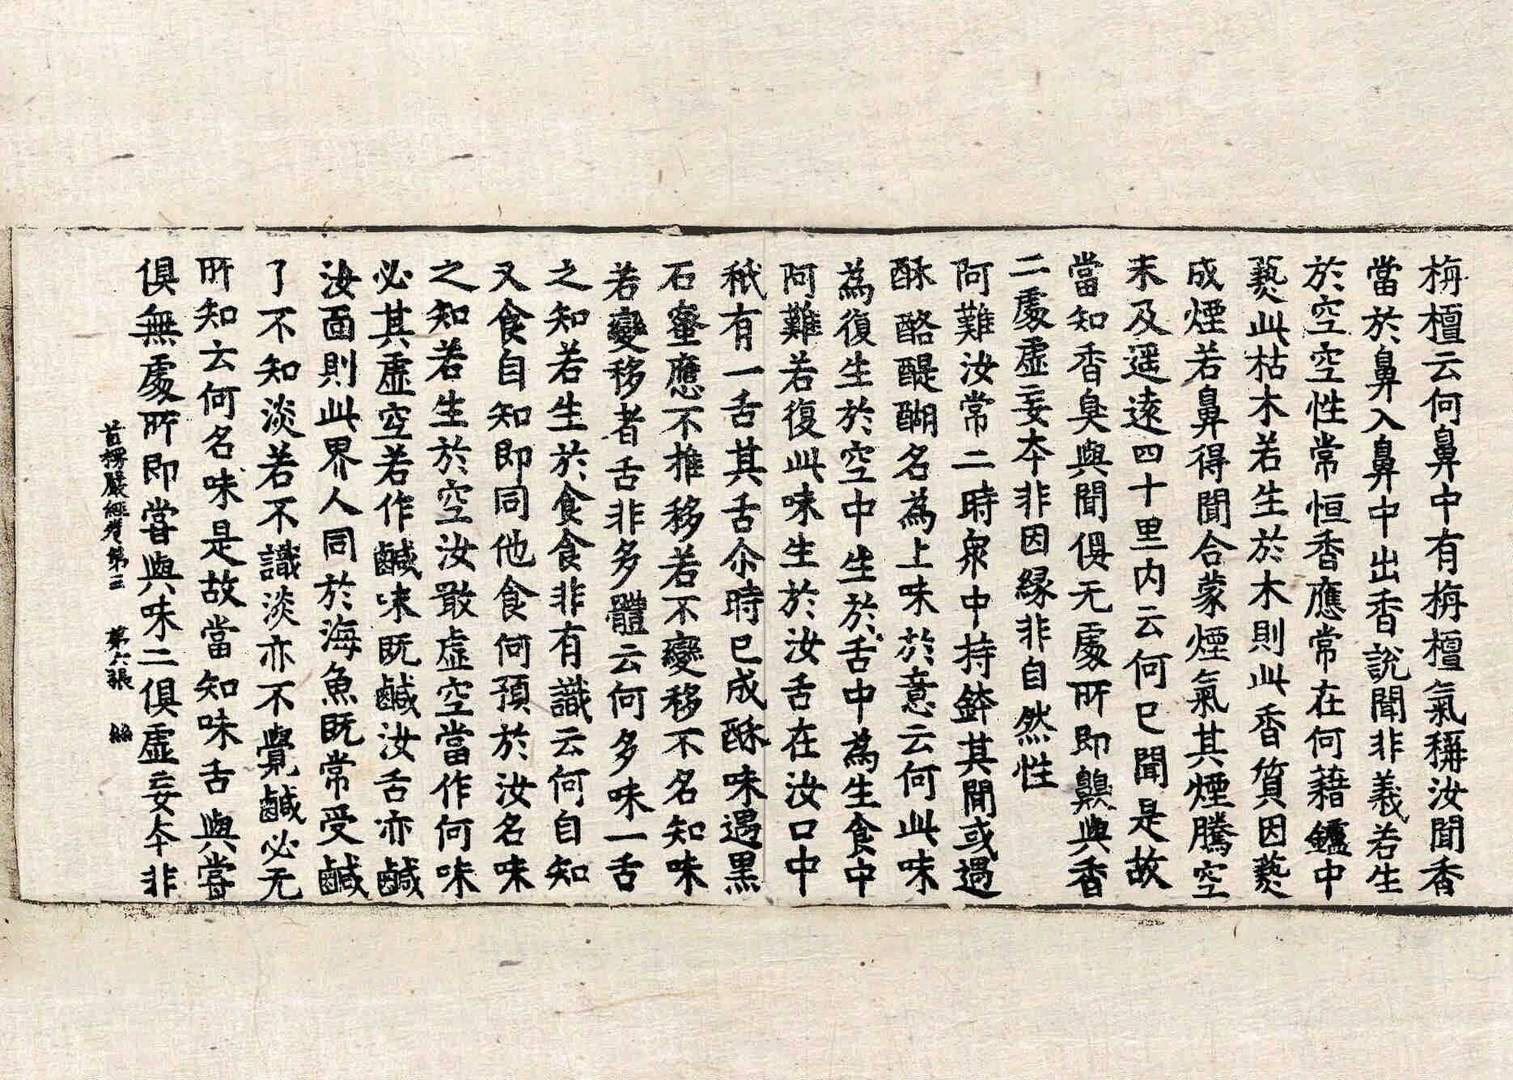 栴檀云何鼻中有栴檀氣稱汝聞香
當於鼻入鼻中出香說聞非義若生
於空空性常恒香應常在何藉鑪中
爇此枯木若生於木則此香質因爇
成煙若鼻得聞合蒙煙氣其煙騰空
未及遥逺四十里内云何已聞是故
當知香臭與聞俱无處所即齅與香
二處虛妄夲非因緣非自然性
阿難汝常二時衆中持鉢其間或遇
酥酪醍醐名為上味於意云何此味
為復生於空中生於舌中為生食中
阿難若復此味生於汝舌在汝口中
秪有一舌其舌尒時已成酥味遇黑
石蜜應不推移若不變移不名知味
若變移者舌非多體云何多味一舌
之知若生於食食非有識云何自知
又食自知即同他食何預於汝名味
之知若生於空汝噉虛空當作何味
必其虛空若作鹹味既鹹汝舌亦鹹
汝面則此界人同於海魚既常受鹹
了不知淡若不識淡亦不覺鹹必无
所知云何名味是故當知味舌與甞
俱無處所即甞與味二俱虛妄夲非
首楞嚴經卷第三 第六張